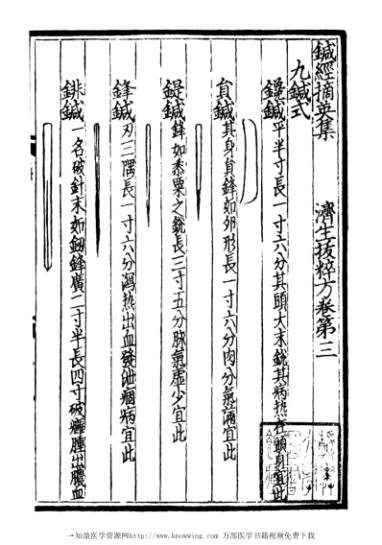 鍼經摘英集　濟生拔粹方卷第三
九鍼式
鑱鍼平半寸長一寸六分其頭大末銳其病熱在頭身宜此
員鍼其身員鋒如卵形長一寸六分肉分氣滿宜此
鍉鍼鋒如黍粟之銳長三寸五分脉氣虛少宜此
鋒鍼刃三隅長一寸六分瀉熱出血發泄痼病宜此
鈹鍼一名破針末如劔鋒廣二寸半長四寸破癰腫出膿血
→知澈医学资源网http://www.knowing.com 万部医学书籍视频免费下载